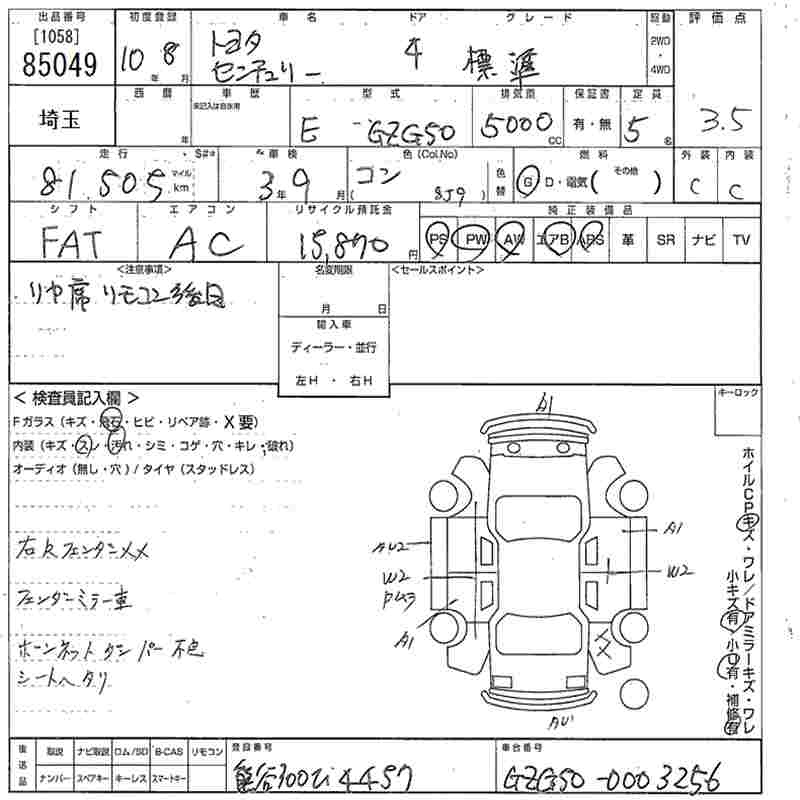 出品番号 初度登録 車名 ドア グレード 駆動 評価点
[1058]
85049
10年 8月
トヨタ
センチュリー
4
標準
2WD
・
4WD
3.5
埼玉
西暦 車歴 型式 排気量 保証書 定員
年
未記入は自家用
E -GZG50
5000 CC
有・無
5名
走行 S#※ 車検 色(Col,No) 燃料 外装 内装
81,505 マイル km
3年9月
コン
( 8J9 )
色替
G D・電気( その他 )
C C
シフト エアコン リサイクル預託金 純正装備品
FAT AC 15,870円
PS PW AW エアB ABS 革 SR ナビ TV
<注意事項> 名変期限 <セールスポイント>
リヤ席リモコン後日
月 日
輸入車
ディーラー・並行
左H ・ 右H
<検査員記入欄>
キーロック
Fガラス(キズ・飛石・ヒビ・リペア跡・X要)
内装(キズ・スレ・汚れ・シミ・コゲ・穴・キレ・破れ)
オーディオ(無し・穴)/タイヤ(スタッドレス)
A1
AU2
W2
A1
A1
W2
AU
右Rフェンダー〆〆
フェンダーミラー車
ボーンネット ダンパー不良
シートヘタリ
ホイルCPキズ・ワレ/ドアミラーキズ・ワレ
小キズ有・小U有・補修有
後送品
取説 ナビ取説 ロム/SD B-CAS リモコン
ナンバー スペアキー キーレス スマートキー
登録番号
熊谷300 4457
車台番号
GZG50-0003256